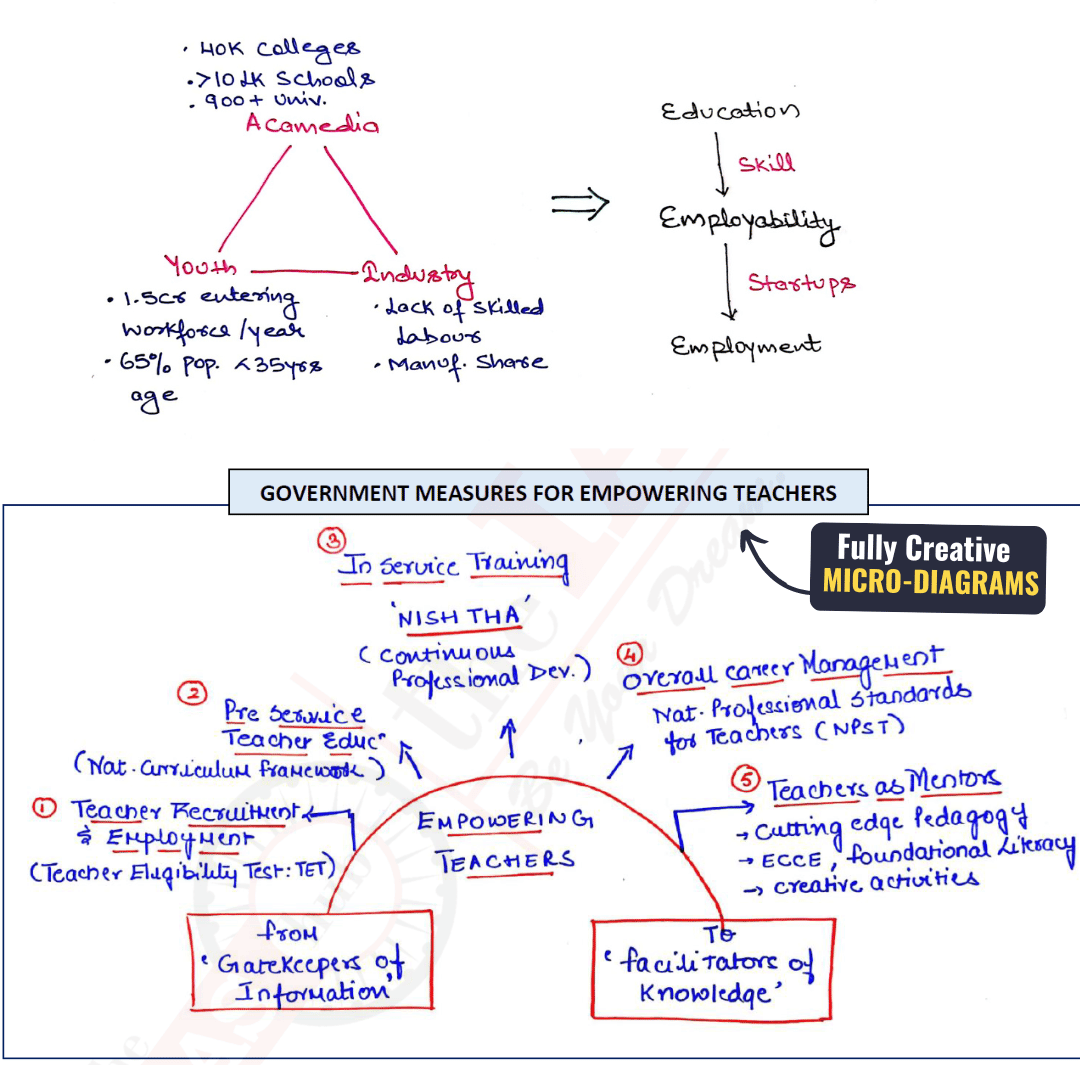 · 40K Colleges
· >10 LK Schools
· 900+ Univ.
Acamedia
Youth
· 1.5Cr entering
workforce/year
· 65% Pop. <35yrs
age
Industry
· Lack of skilled
Labour
· Manuf. Share
⇒
Education
Skill
Employability
Startups
Employment
GOVERNMENT MEASURES FOR EMPOWERING TEACHERS
Fully Creative
MICRO-DIAGRAMS
③ In Service Training
'NISHTHA'
(Continuous
Professional Dev.)
② Pre Service
Teacher Educⁿ
(Nat. Curriculum framework)
④ Overall Career Management
Nat. Professional Standards
for Teachers (NPST)
① Teacher Recruitment
& Employment
(Teacher Eligibility Test: TET)
EMPOWERING
TEACHERS
⑤ Teachers as Mentors
→ Cutting edge Pedagogy
→ ECCE, foundational Literacy
→ Creative activities
from
'Gatekeepers of
Information'
To
'facilitators of
Knowledge'
the
Be Your Dream